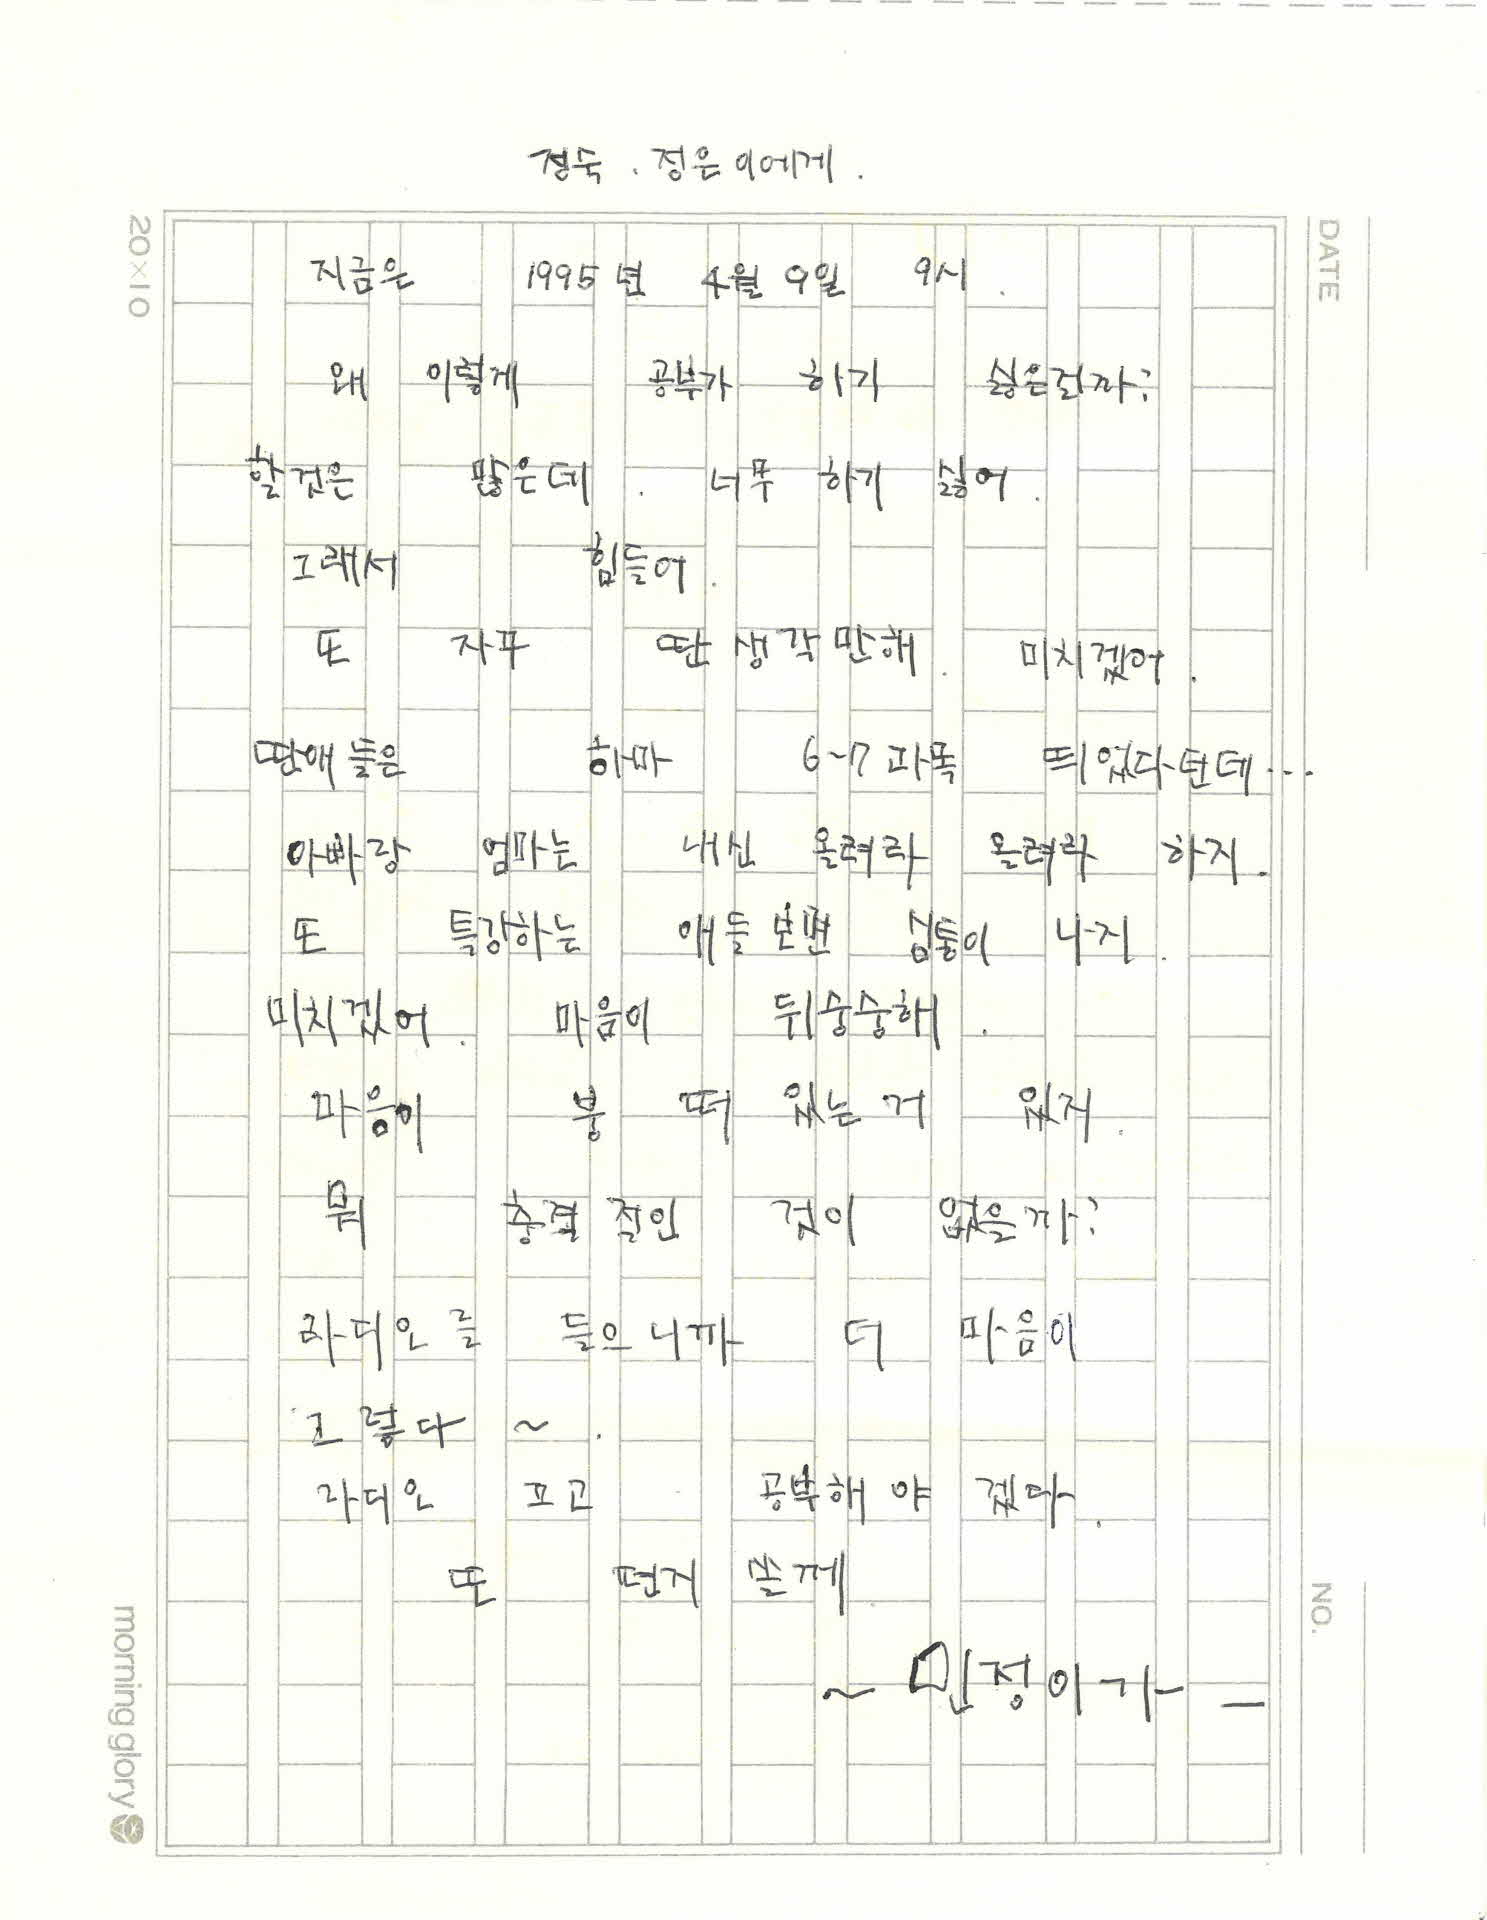 경숙. 정은이에게.
지금은 1995년 4월 9일 9시.
왜 이렇게 공부가 하기 싫은걸까?
할것은 많은데. 너무 하기 싫어.
그래서 힘들어.
또 자꾸 딴 생각만해. 미치겠어.
딴애들은 하마 6~7과목 띄었다던데...
아빠랑 엄마는 내신 올려라 올려라 하지.
또 특강하는 애들 보면 심통이 나지.
미치겠어. 마음이 뒤숭숭해.
마음이 붕 떠 있는거 있지.
뭐 충격적인 것이 없을까?
라디오를 들으니까 더 마음이
그렇다 ~.
라디오 끄고 공부해야겠다.
또 편지 쓸께
~ 민정이가 -
DATE
NO.
20×10
morning glory